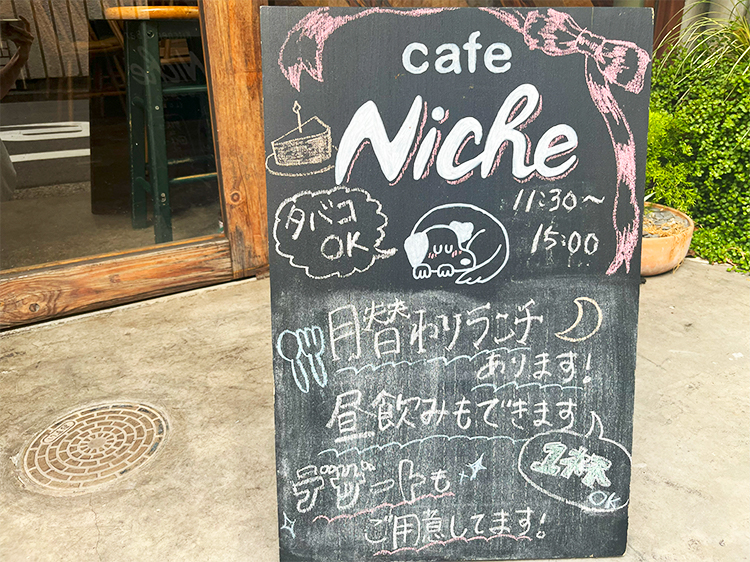 cafe
Niche
11:30～
15:00
タバコ
OK
月替わりランチ
あります!
昼飲みもできます
1杯
OK
デザートも
ご用意してます!